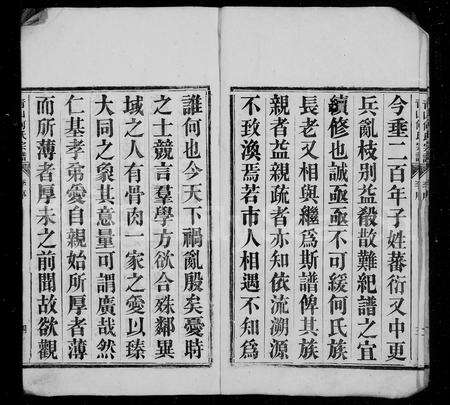 今垂二百年子姓蕃衍又中更
兵亂枝別益殽散難紀譜之宜
續修也誠亟亟不可緩何氏族
長老又相與繼為斯譜俾其族
親者益親疏者亦知依流溯源
不致渙焉若市人相遇不知為
誰何也今天下禍亂殷矣憂時
之士競言羣學方欲合殊鄰異
域之人有骨肉一家之愛以臻
大同之象其意量可謂廣哉然
仁基孝弟愛自親始所厚者薄
而所薄者厚未之前聞故欲觀